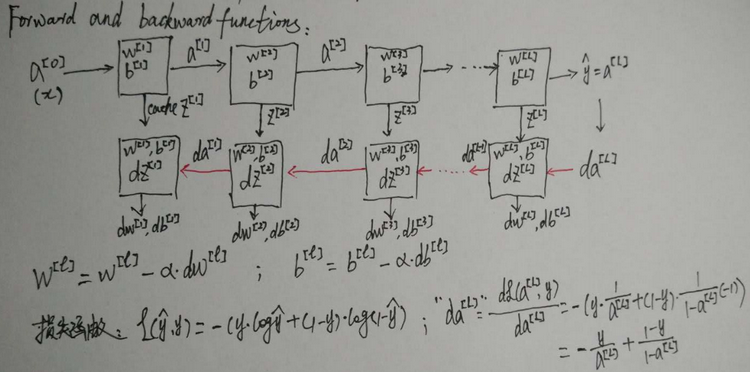 Forward and backward functions:
a^[0] (x) → w^[1] b^[1] → a^[1] → w^[2] b^[2] → a^[2] → w^[3] b^[3] → ····· → w^[L] b^[L] → ŷ=a^[L]
cache z^[1] z^[2] z^[3] z^[L]
w^[1],b^[1] dz^[1] ← da^[1] ← w^[2],b^[2] dz^[2] ← da^[2] ← w^[3],b^[3] dz^[3] ← ····· da^[L-1] ← w^[L],b^[L] dz^[L] ← da^[L]
dw^[1],db^[1] dw^[2],db^[2] dw^[3],db^[3] dw^[L],db^[L]
w^[l] = w^[l] - α·dw^[l] ; b^[l] = b^[l] - α·db^[l]
损失函数: L(ŷ,y) = -(y·logŷ+(1-y)·log(1-ŷ)) ; "da^[L]" = dL(a^[L],y)/da^[L] = -(y·1/a^[L]+(1-y)·1/(1-a^[L])(-1))
= -y/a^[L] + (1-y)/(1-a^[L])